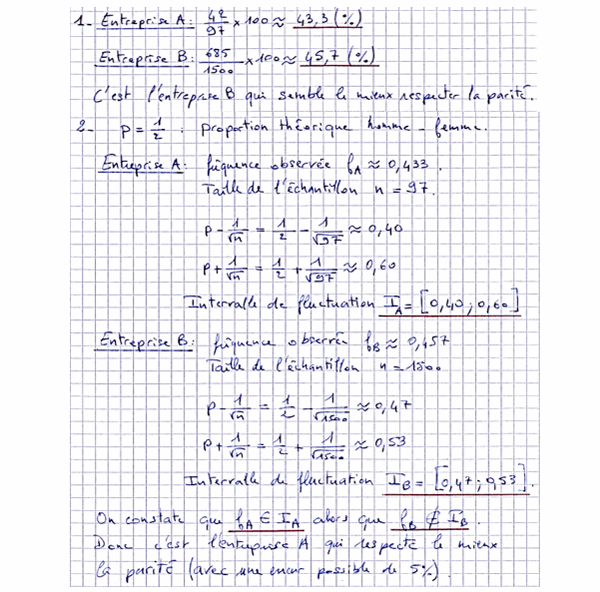 1- Entreprise A: 42/97 × 100 ≈ 43,3 (%)
Entreprise B: 685/1500 × 100 ≈ 45,7 (%)
C'est l'entreprise B qui semble le mieux respecter la parité.
2- p = 1/2 : proportion théorique homme - femme.
Entreprise A: fréquence observée fA ≈ 0,433.
Taille de l'échantillon n = 97.
p - 1/√n = 1/2 - 1/√97 ≈ 0,40
p + 1/√n = 1/2 + 1/√97 ≈ 0,60
Intervalle de fluctuation IA = [0,40 ; 0,60]
Entreprise B: fréquence observée fB ≈ 0,457
Taille de l'échantillon n = 1500
p - 1/√n = 1/2 - 1/√1500 ≈ 0,47
p + 1/√n = 1/2 + 1/√1500 ≈ 0,53
Intervalle de fluctuation IB = [0,47 ; 0,53].
On constate que fA ∈ IA alors que fB ∉ IB.
Donc c'est l'entreprise A qui respecte le mieux
la parité (avec une erreur possible de 5%).